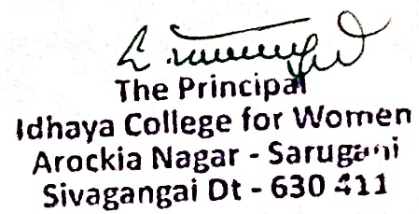 The Principal
Idhaya College for Women
Arockia Nagar - Sarugani
Sivagangai Dt - 630 411